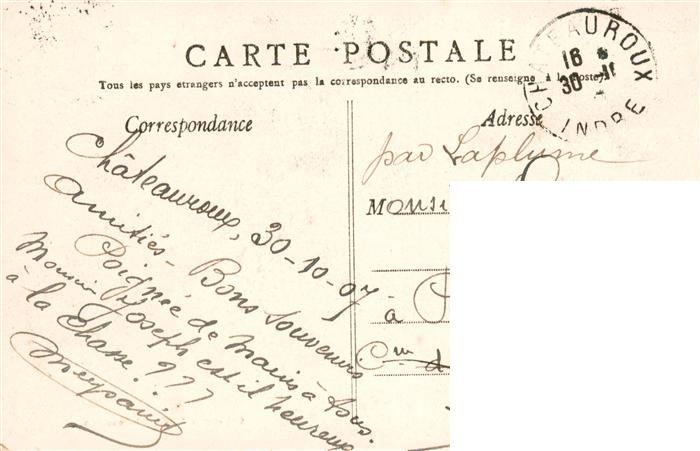 CARTE POSTALE
Tous les pays etrangers n'acceptent pas la correspondance au recto. (Se renseigner à la Poste)
CHATEAUROUX
16
30
INDRE
Correspondance
Châteauroux, 30-10-07
Amitiés - Bons souvenirs
Poignée de mains à tous.
Monsieur Joseph est il heureux
à la chasse ? ? ?
Adresse
par Laplume
Monsi
à